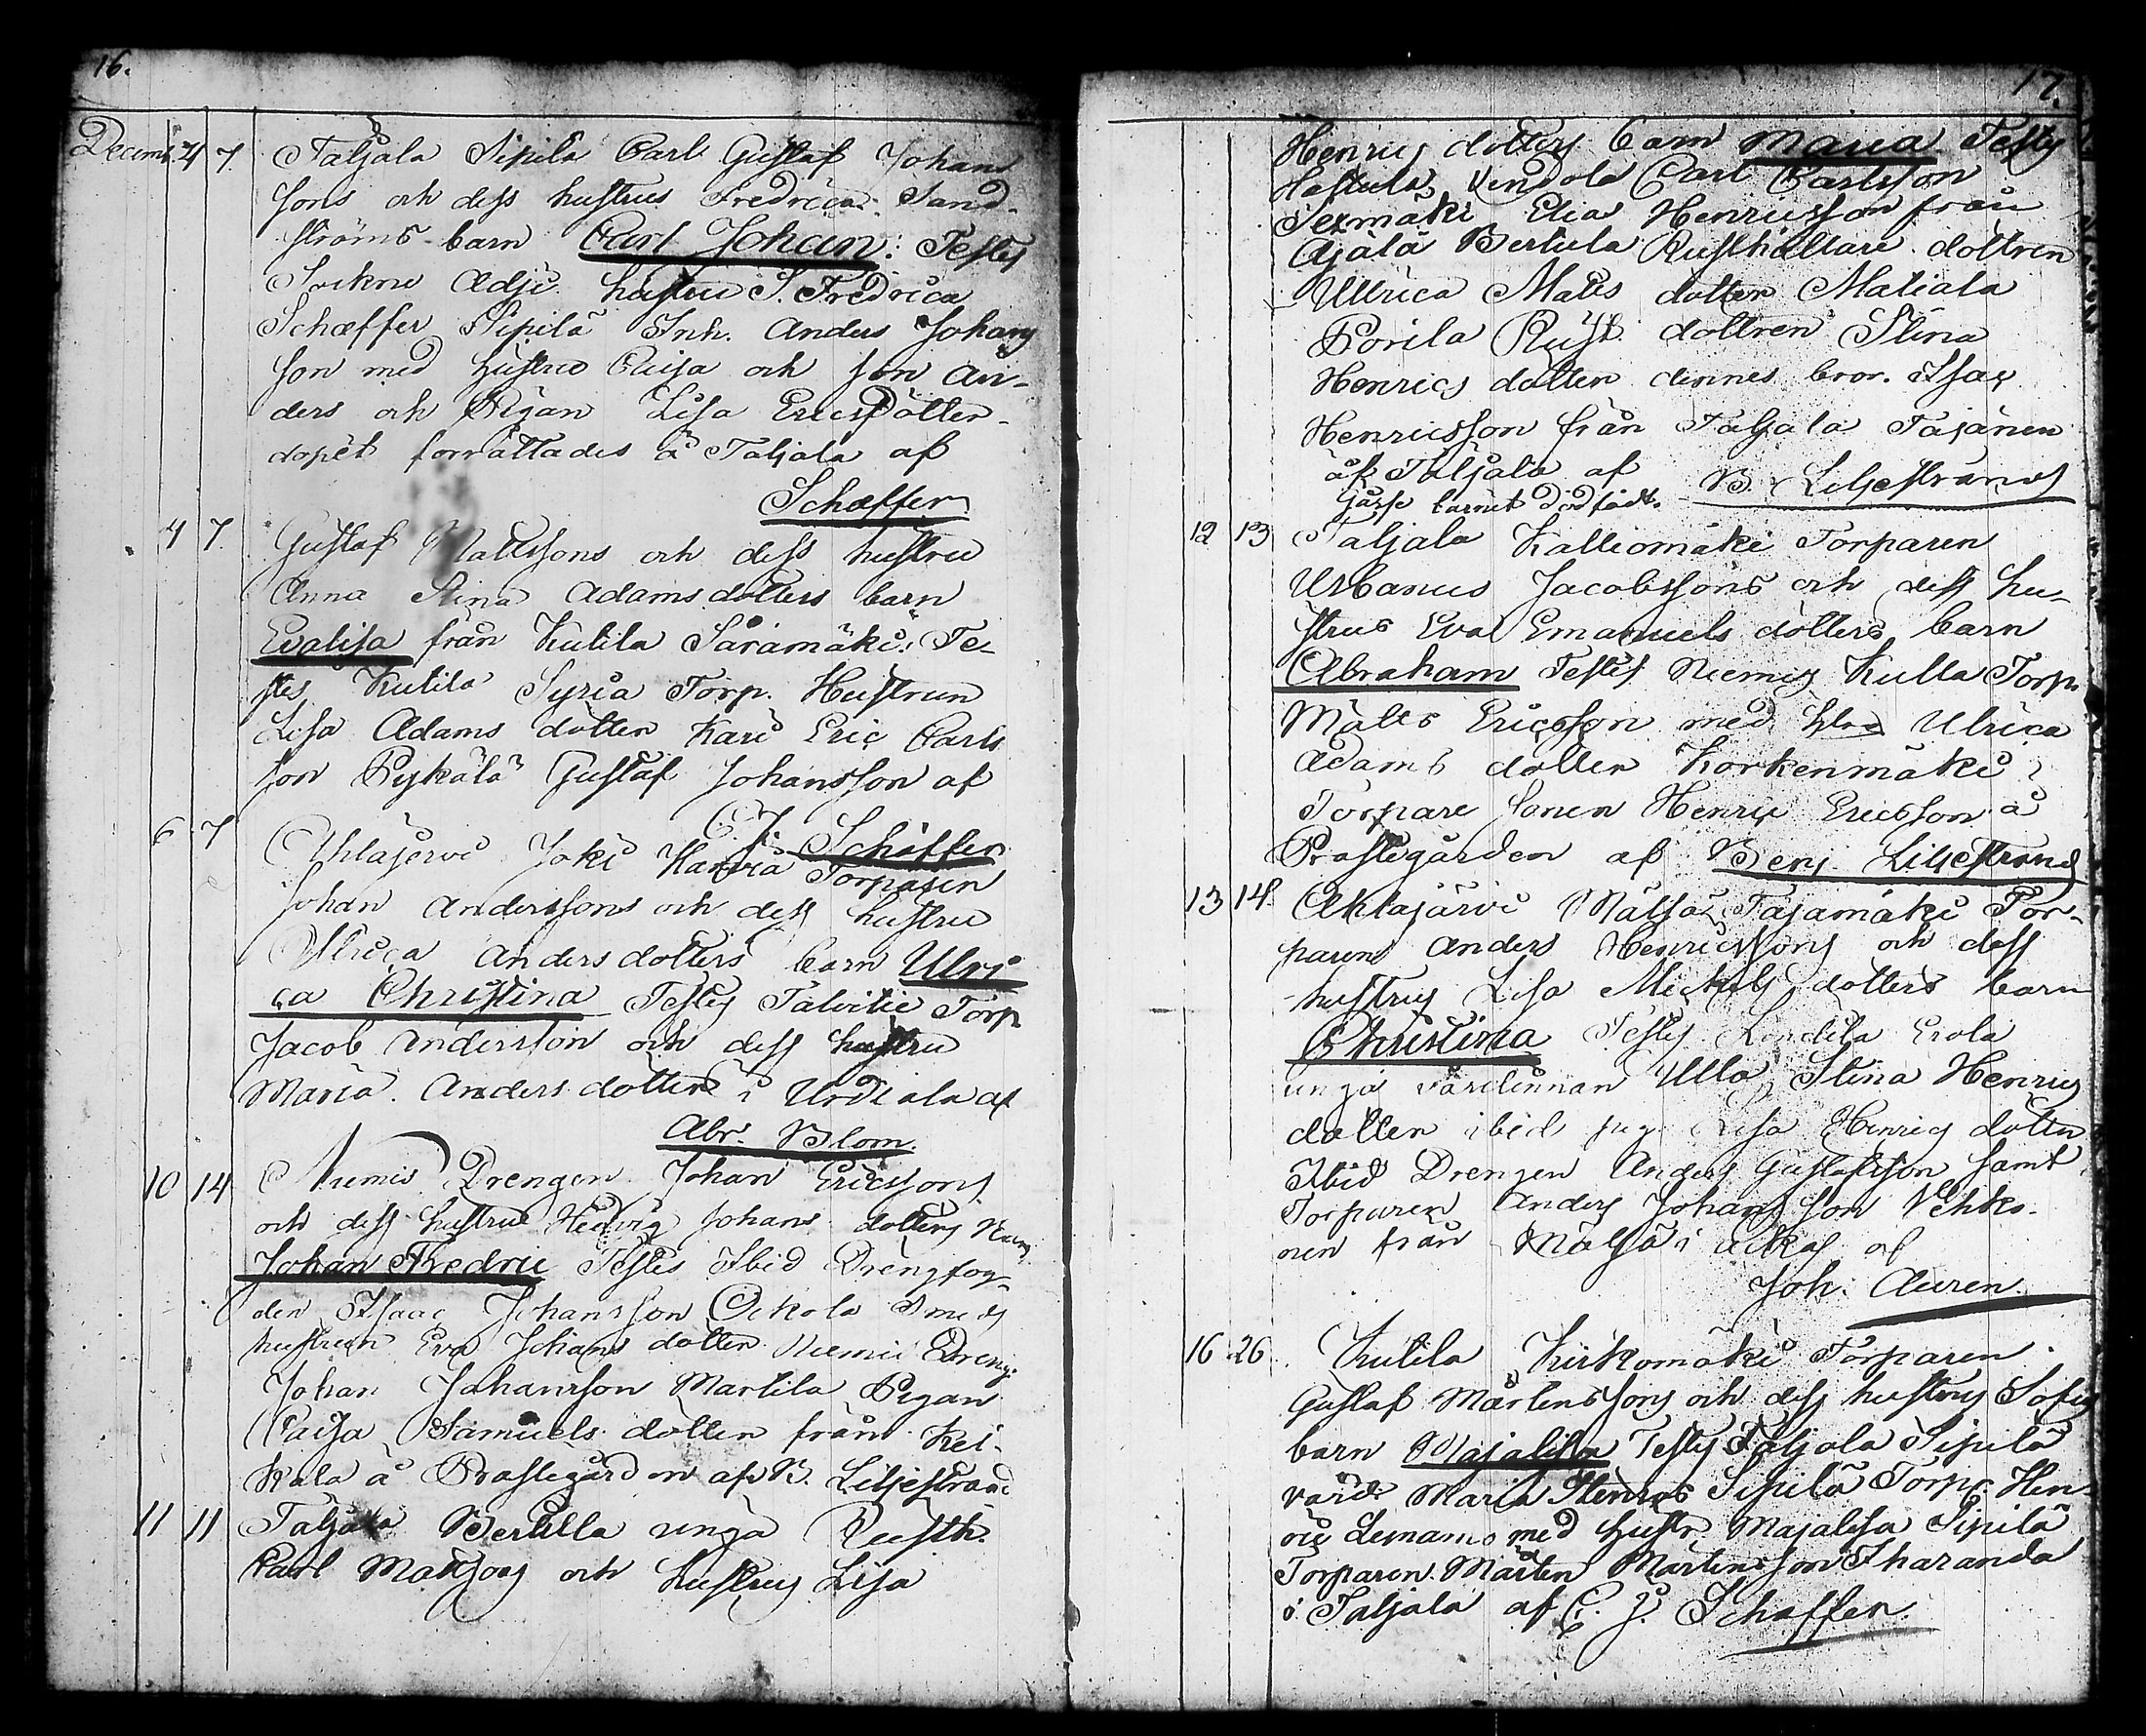 16.
Decemb. 4 7. Taljala Sipilä Carl Gustaf Johans
sons och dess hustrus Fredrica Sand-
ströms barn Carl Johan: Testes
Sockne Adj: hustru S. Fredrica
Schæffer Sipilä Inh. Anders Johans
son med hustru Caisa och son An-
ders och Pigan Lisa Ericsdotter
dopet förrättades å Taljala af
Schæffer
4 7. Gustaf Mattssons och dess hustru
Anna Stina Adams dotters barn
Evalisa från Kutila Saramäki: Te-
stes Kutila Syria Torp. Hustrun
Lisa Adams dotter Kari Eric Carls
son Pykälä Gustaf Johansson af
C. J. Schæffer
6 7 Ahlajervi Joki Torparen
Johan Anderssons och dess hustru
Ulrica Anders dotters barn Ulri
ca Christina Testes Talvitie Torp
Jacob Andersson och dess hustru
Maria Anders dotter i Urdiala af
Abr. Blom.
10 14 Niemis Drengen Johan Ericssons
och dess hustru Hedvig Johans dotters
Johan Fredric Testes Ibid Drengfog-
den Isaac Johansson Smeds
hustrun Eva Johans dotter Niemis Dreng
Johan Johansson Martila Pigan
Caisa Samuels dotter från Kei-
kala å Prästegården af B. Liljestrand
11 11 Taljala Bertilla unga Rusth.
Carl Matssons och hustrus Lisa
17.
Henrics dotters barn Maria Testes
Carl Carlsson
Elias Henricsson från
Ajälä Bertula Rusthållare dottren
Ullrica Mats dotter Matiala
Porila Rust. dottren Stina
Henrics dotter dennes bror Isac
Henricsson från Taljala Tajänen
af B. Liljestrand
barnet dödfödt.
12 13 Taljala Kalliomäki Torparen
Urbanus Jacobssons och dess hu-
strus Eva Emanuels dotters barn
Abraham Testes Niemis Kulla Torp.
Matts Ericsson med Ulrica
Adams dotter Korkenmäki
Torpare sonen Henric Ericsson å
Prästegården af Benj. Liljestrand
13 14 Ahlajärvi Mälsä Tajamäki Tor-
paren Anders Henricssons och dess
hustrus Lisa Mickels dotters barn
Christina Testes Erola
unga värdinnan Ulla Stina Henrics
dotter ibid pig. Lisa Henrics dotter
Ibid Drengen Anders Gustafsson samt
Torparen Anders Johansson Vehko-
nen från Mälsä i af
Joh. Auren.
16 26. Kutila Kirkomäki Torparen
Gustaf Mårtenssons och dess hustrus Sofias
barn Majalisa Testes Taljala Sipilä
värd. Maria Sipilä Torp. Hen-
ric med hustr. Majalisa Sipilä
Torparen Mårten Mårtensson Iharanda
i Taljala af C. J. Schæffer.